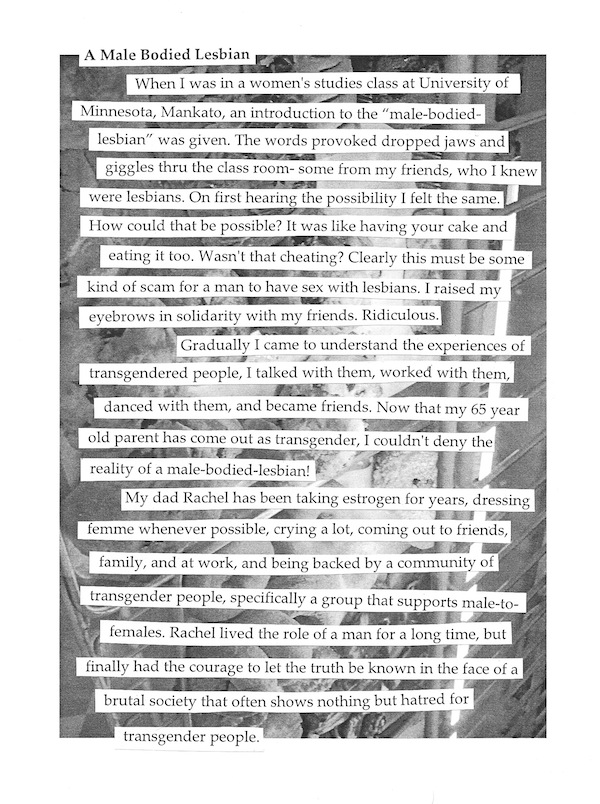 A Male Bodied Lesbian
When I was in a women's studies class at University of
Minnesota, Mankato, an introduction to the “male-bodied-
lesbian” was given. The words provoked dropped jaws and
giggles thru the class room- some from my friends, who I knew
were lesbians. On first hearing the possibility I felt the same.
How could that be possible? It was like having your cake and
eating it too. Wasn't that cheating? Clearly this must be some
kind of scam for a man to have sex with lesbians. I raised my
eyebrows in solidarity with my friends. Ridiculous.
Gradually I came to understand the experiences of
transgendered people, I talked with them, worked with them,
danced with them, and became friends. Now that my 65 year
old parent has come out as transgender, I couldn't deny the
reality of a male-bodied-lesbian!
My dad Rachel has been taking estrogen for years, dressing
femme whenever possible, crying a lot, coming out to friends,
family, and at work, and being backed by a community of
transgender people, specifically a group that supports male-to-
females. Rachel lived the role of a man for a long time, but
finally had the courage to let the truth be known in the face of a
brutal society that often shows nothing but hatred for
transgender people.